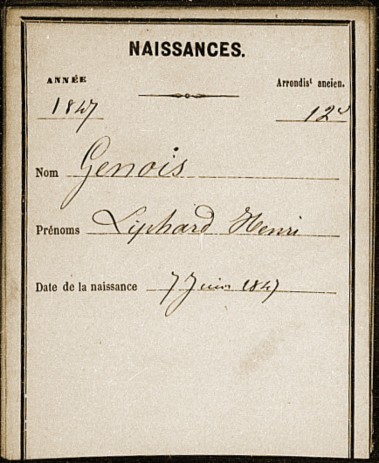 NAISSANCES.
ANNÉE Arrondist ancien.
1847 12e
Nom Genois
Prénoms Liphard Henri
Date de la naissance 7 Juin 1847